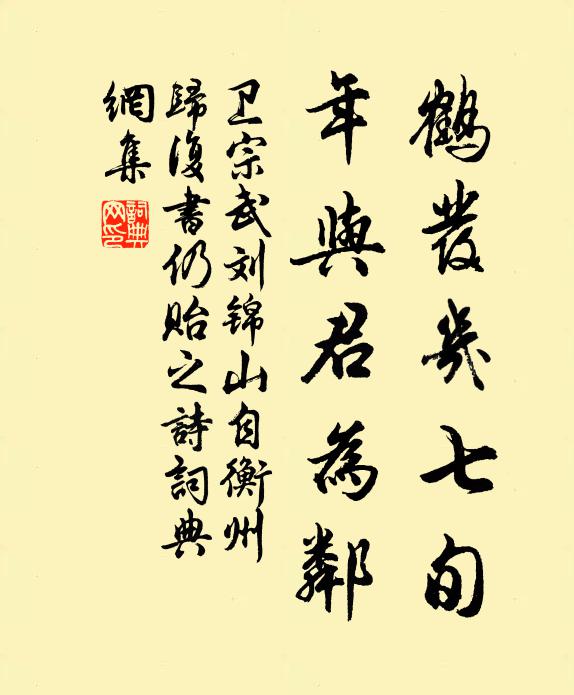 鶴發幾七旬
年與君為鄰
卫宗武刘锦山自衡州
歸復書仍贻之詩詞典
網集
詞典
网印